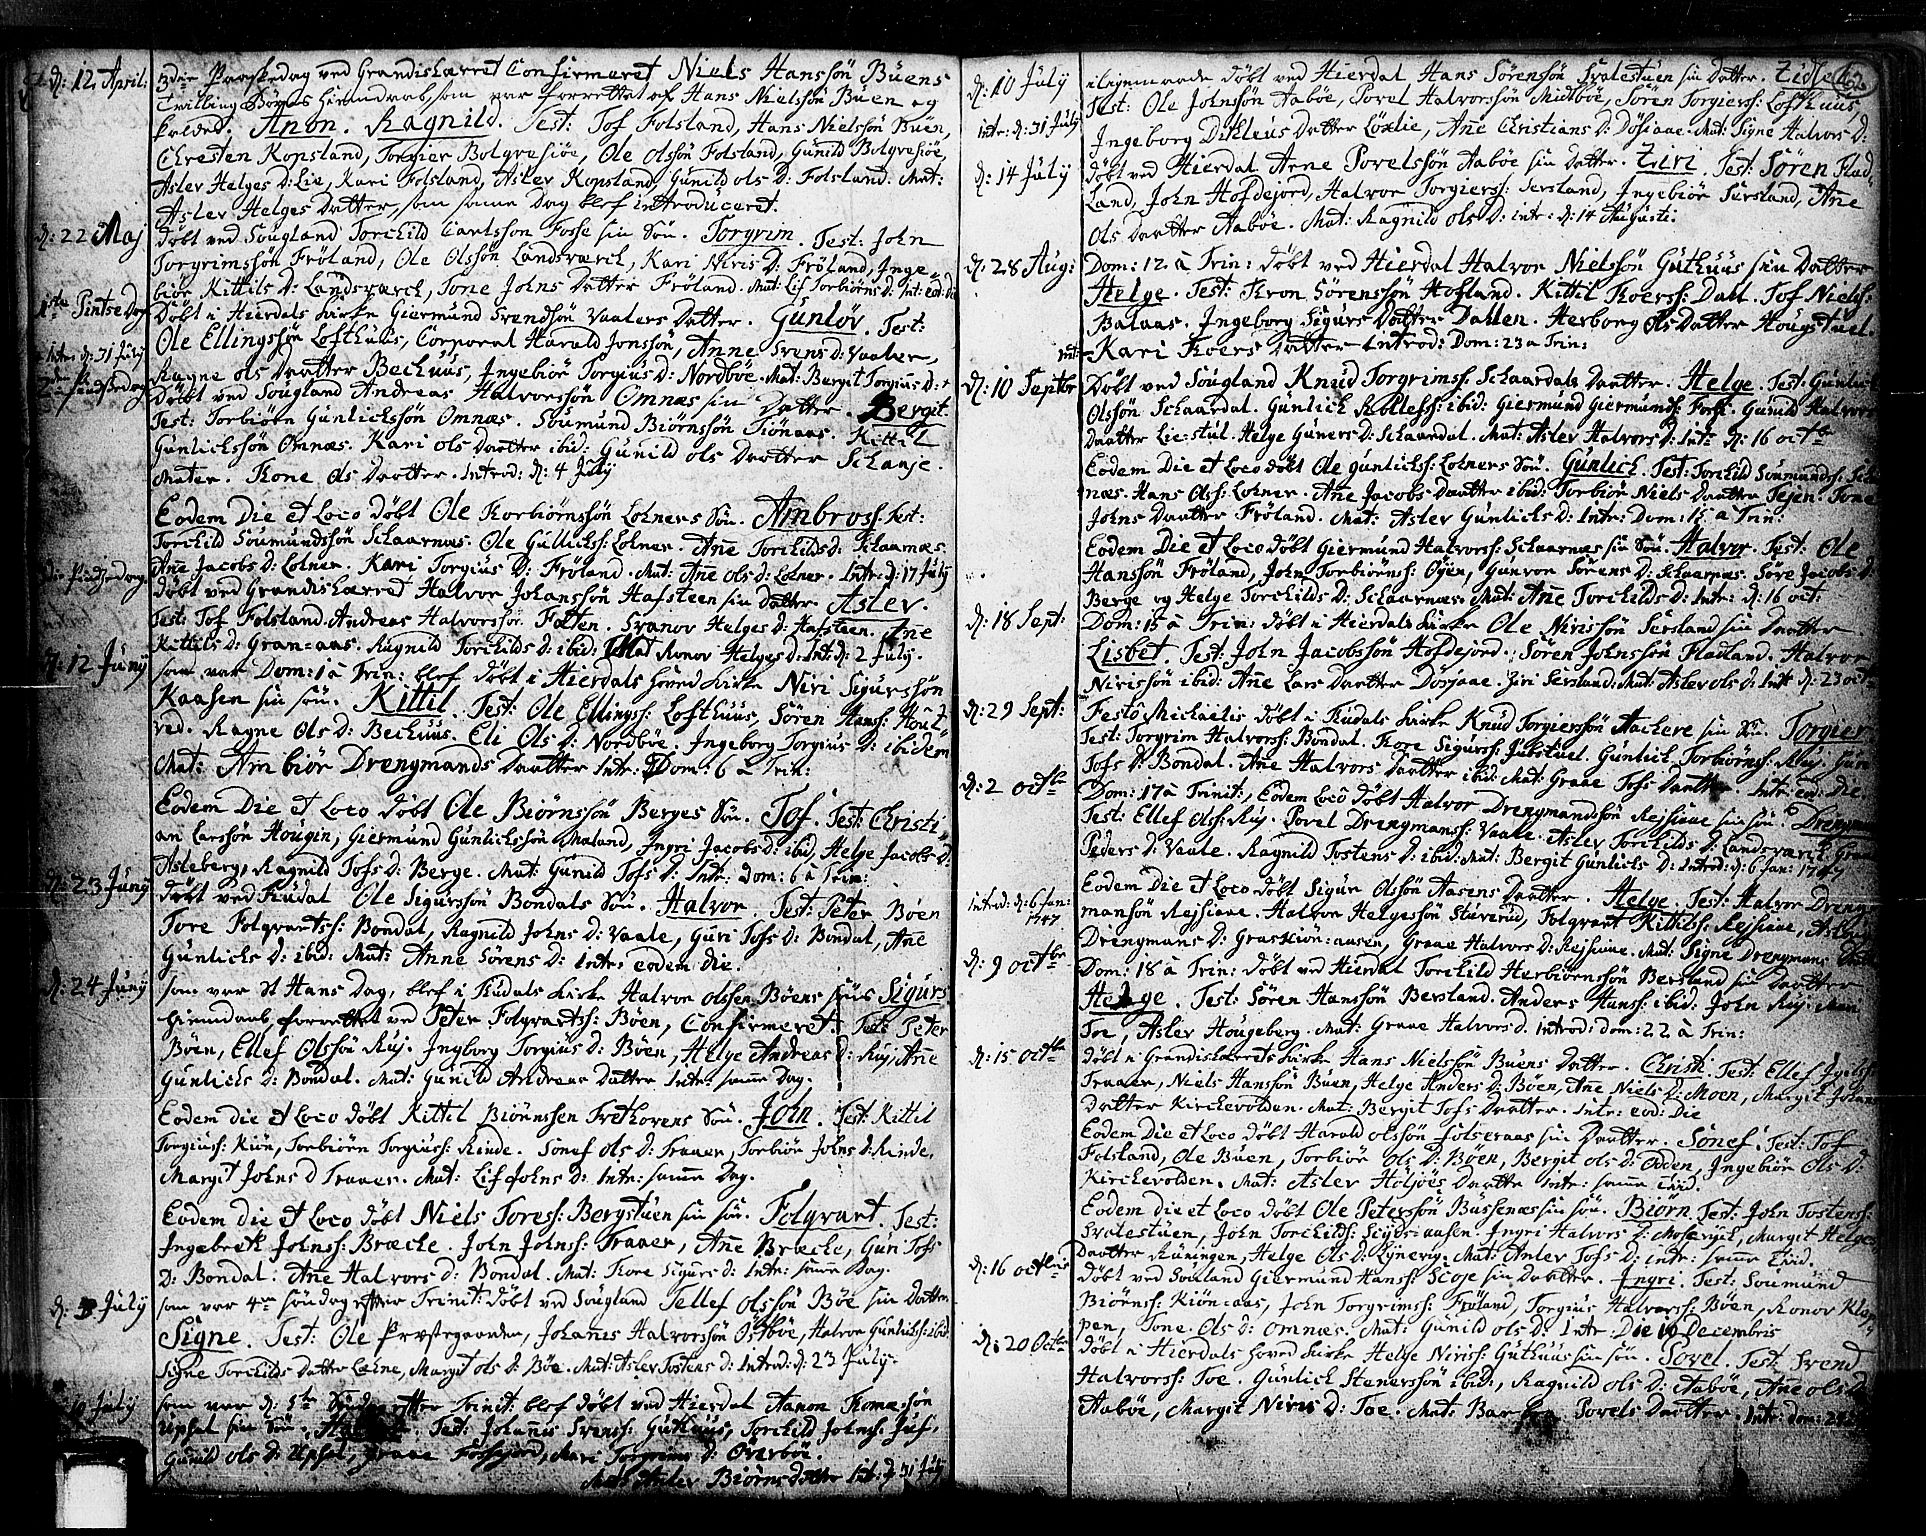 d: 12. April: 3die Paaskedag ved Grandisherret Confirmeret Niels Hanssön Büens
Trilling Börns hiemdaab, som var forrettet af Hans Nielssön Büen og
kaldet. Anon. Ragnild. Test: Tof Folsland, Hans Nielssön Büen,
Chresten Kopsland, Torgier Bolgresiöe, Ole Olssön Folsland, Gunild Bolgresiöe,
Aslev Helges D: Lie, Kari Folsland, Aslev Kopsland, Gunild Ols D: Folsland. Mat:
Aslev Helges Datter, som samme Dag blef introduceret.
d: 22 Maj Döbt ved Sougland Torchild Carlsson Fosse sin Sön. Torgrim. Test: John
Torgrimssön Fröland, Ole Olssön Landsværck, Kari Niris D: Fröland, Inge
biör Kittils D: Landsværck, Tone Johns Datter Fröland. Mat: Lif Torbiörns D: Int: eod: die
1ste Pintse Dag Döbt i Hierdals Kirke Giermund Svendsön Vaalers Datter. Gunlöv. Test:
Ole Ellingssön Lofthuus, Corporal Harald Jonssön, Anne Svens d: Vaaler,
Intr: d: 31 July Ragne Ols Daatter Bechuus, Ingebiör Torgius D: Nordböe. Mat: Bergit Torgius D:
2den Pindsedag Döbt ved Sougland Andreas Halvorssön Omnæs sin Datter. Bergit.
Test: Torbiörn Gunlickssön Omnæs. Soumund Biörnssön Tiönaas. Kittil
Gunlickssön Omnæs. Kari Ols Daatter ibid: Gunild Ols Daatter Schanje.
Mater. Tone Ols Daatter. Introd: d: 4 July
Eodem Die et Loco döbt Ole Torbiörnssön Lohners Sön. Ambros. Test:
Torchild Soumundssön Schaarnæs. Ole Gullichss: Lohner. Anne Torchilds d: Schaarnæs.
Ane Jacobs d: Lohner. Kari Torgius D: Fröland. Mat: Anne Ols d: Lohner. Intr: d: 17 July
3die Pindsedag. Döbt ved Grandisherred Halvor Johanssön Hafsteen sin Datter Aslev.
Test: Tof Folsland. Andreas Halvorssön Folten. Svanov Helges D: Hafsteen. Anne
Kittils D: Gran=aas. Ragnild Torchilds D: ibid: Mat Ronov Helges D: Int: d: 2 July.
d: 12 Juny som var Dom: 1 a Trin: blef döbt i Hierdals hoved Kirke Niri Sigurssön
Kaasen sin sön. Kittil. Test: Ole Ellingss: Lofthuus, Sören Hanss:
ved. Ragne Ols D: Bechuus. Eli Ols D: Nordböe. Ingeborg Torgius D: ibidem
Mat: Ambiör Drengmands Daatter Intr: Dom: 6 a Trin:
Eodem Die et Loco döbt Ole Biörnssön Berges Sön. Tof. Test: Christi
an Larssön Hougin, Giermund Gunlickssön Maland, Ingri Jacobs d: ibid, Helge Jacobs d:
Asleberg, Ragnild Tofs D: Berge. Mat: Gunild Tofs D: Intr: Dom: 6 a Trin:
d: 23 Juny Döbt ved Tudal Ole Sigurssön Bondals Sön. Halvor. Test: Peter Böen
Tore Folqvartss: Bondal, Ragnild Johns D: Vaale, Guri Tofs D: Bondal, Anne
Gunlichs D: ibid: Mat: Anne Sörens D: Intr: eodem die.
d: 24 Juny som var St Hans Dag, blef i Tudals Kirke Halvor Olssen Böens Sigurs
hiemdaab, forrettet ved Peter Folqvartss: Böen, Confirmeret. Test: Peter
Böen, Ellef Olssön Ruj. Ingborg Torgius D: Böen, Helge Andreas d: Ruj, Anne
Gunlichs D: Bondal. Mat: Gunild Andreas Datter Intr: samme Dag.
Eodem die et Loco döbt Kittil Biörnssen Frethovens Sön. John. Test: Kittil
Torgiuss: Kiön, Torbiörn Torgiuss: Rinde. Sonef Ols d: Traaer, Torbiör Johns d: Rinde,
Margit Johns d Traaer. Mat: Lif Johns d: Intr: samme Dag.
Eodem die et Loco döbt Niels Toress: Bergstuen sin sön. Folqvart. Test:
Ingebret Johnss: Bræcke. John Johnss: Traaer, Anne Bræcke, Guri Tofs
D: Bondal. Anne Halvors d: Bondal. Mat: Tore Sigurs d: Intr: samme Dag.
d: 3 July som var 4de söndag efter Trinit: döbt ved Sougland Tellef Olssön Böe sin Datter.
Signe. Test: Ole Prestegaarden, Johanes Halvorssön Östböe, Halvor Gunlichss: ibid:
Signe Torchilds Datter Lohne, Margit Ols d: Böe. Mat: Aslev Tostens D: Introd: d: 23 July.
10 July som var d: 5te Söndag efter Trinit: blef döbt ved Hierdal Aanon Thomæssön
Uphal sin Sön. Test: Johannis Svenss: Guthuus, Torchild Johnss: Juf,
Gunild Ols D: Uphal, Graae Fossjord, Mari Torgrims D. Överböe.
Mat: Aslev Biörns Datter Int: d: 31 July
d: 10 July döbt ved Hierdal Hans Sörenssön Svalestuen sin Datter.
Test: Ole Johnssön Aaböe, Povel Halvorssön Midböe, Sören Torgierss: Lofthuus,
Intr: d: 31 July Ingeborg Ditleus Datter Löxlie, Anne Christians D: Dösiaae. Mat: Signe Halvors D:
d: 14 July döbt ved Hierdal Arne Povelssön Aaböe sin Datter. Ziri. Test: Sören Flad=
Land, John Hofdejord, Halvor Torgierss: Sersland, Ingebiör Sersland, Anne
Ols Daatter Aaböe. Mat: Ragnild Ols D: intr: d: 14 Augusti.
d: 28 Aug: Dom: 12 a Trin: döbt ved Hierdal Halvor Nielssön Guthuus sin Datter
Helge. Test: Aron Sörenssön Hofland. Kittil Roerss: Dall. Tof Nielss:
Balaas. Ingeborg Sigurs Datter Dahlen. Herborg Ols Datter Hougstuel.
Kari Roers Datter Introd: Dom: 23 a Trin:
d: 10 Septbr Döbt ved Sougland Knud Torgrimss: Schaardals Daatter. Helge. Test: Gunlich
Olssön Schaardal. Gunlich Rollefss: ibid: Giermund Giermunds: Forke. Gunild Halvors
Daatter Lie=stul. Helge Guners D: Schaardal. Mat: Aslev Halvors D: Intr d: 16 octbr
Eodem Die et Loco döbt Ole gunlichss: Lohners Sön. Gunlich. Test: Torchild Soumundss: Schaar
næs. Hans Olss: Lohner. Ane Jacobs Daatter ibid: Torbiör Niels Daatter Tejen. Tone
Johns Daatter Fröland. Mat: Aslev Gunlichs D: Intr: Dom: 15 a Trin:
Eodem Die et Loco döbt Giermund Halvorss: Schaarnæs sin Sön. Halvor. Test: Ole
Hanssön Fröland, John Torbiörnss: Öyen, Gunvor Sörens D: Schaarnæs. Söre Jacobs D:
Berge og Helge Torchilds D: Schaarnæs. Mat: Anne Torchilds D: Intr: d: 16 oct:
d: 18 Sept: Dom: 15 a Trin: döbt i Hierdals Kirke Ole Nirissön Sersland sin Daatter.
Lisbet. Test: John Jacobssön Hofdejord. Sören Johnssön Fladland. Halvor
Nirissön ibid: Anne Lars Daatter Dörjaae. Ziri Sersland. Mat: Aslev Ols d: Intr d: 23 oct
d: 29 Sept: Festo Michaelis döbt i Tudals Kirke Knud Torgierssön Aackere sin Sön. Torgier
Test: Torgrim Halvorss: Bondal. Tore Sigurss: Jubstuel. Gunlich Torbiörnss: Ruj. Guri
Tofs D: Bondal. Anne Halvors Daatter ibid: Mat: Graae Tofs Daatter. Intr: eod: die
d: 2 octbr Dom: 17 a Trinit:, Eodem Loco döbt Halvor Drengmandsön Rejsiaae sin sön. Drengman
Test: Ellef Olss: Ruj. Povel Drengmanss: Vaale. Aslev Torchilds D: Landsværck. Graae
Peders D: Vaale. Ragnild Tostens D: ibid: Mat: Bergit Gunlichs D: Introd: d: 6 Jan: 1747
Eodem Die et Loco döbt Sigur Olssön Aasens Daatter. Helge. Test: Halvor Dreng=
Introd: d: 6 Jan: 1747 mansön Rejsiaae. Halvor Helgessön Stuverud, Folqvart Kittilss: Rejsiaae, Aslaug
Drengmans D: Graskiön=aasen, Graae Halvors D: Rejsiaae. Mat: Signe Drengmans Daatter
d: 9 octbr Dom: 18 a Trin: döbt ved Hierdal Torchild Herbiörnssön Bersland sin Daatter
Helge. Test: Sören Hanssön Bersland. Anders Hanss: ibid. John Ruj. Mari
Toe, Aslev Hougeberg. Mat: Graae Halvors d. introd: dom: 22 a Trin:
d: 15 octbr Döbt i Grandisherrets Kirke Hans Nielssön Büens Datter. Christi. Test: Ellef
Traaer, Niels Hanssön Büen, Helge Anders D: Böen, Ane Niels D: Moen, Margit Johans
Datter Kirckevolden. Mat: Bergit Tofs Daatter. Intr: eod: Die
Eodem Die et Loco döbt Harald Olssön Folseraas sin Daatter. Sonef. Test: Tof
Folsland, Ole Büen, Torbiör Ols D: Böen, Bergit Ols d: Odden, Ingebiör Ols D:
Kirckevolden. Mat: Aslev Holjöes Daatter Intr: samme Tiid.
Eodem die et Loco döbt Ole Peterssön Bussenæs sin sön. Biörn. Test: John Tostenss:
Svalestuen, John Torchilds: Sejds=aasen. Ingri Halvors D: Moseryet, Margit Helges
Daatter Runingen, Helge Ols D: Rynerig. Mat: Anlev Tofs D: intr: samme Tiid.
d: 16 octbris Döbt ved Souland Giermund Hanss: Scoje sin Daatter. Ingri. Test: Soumund
Biörnss: Kiön=aas, John Torgrimss: Fröland, Torgius Halvorss: Böen, Ronov Klap
pen, Tone Ols D: Omnæs. Mat: Gunild Ols D: Intr: Die 10 Decembris
d: 20 Octbr Döbt i Hierdals hoved Kirke Helge Niriss: Guthuus sin sön. Povel. Test: Svend
Halvorss: Toe. Gunlich Stenerssön ibid:, Ragnild Ols D: Aaböe, Anne Ols D:
Aaböe, Margit Niris D: Toe. Mat: Barbra Povels Daatter. Intr: dom: